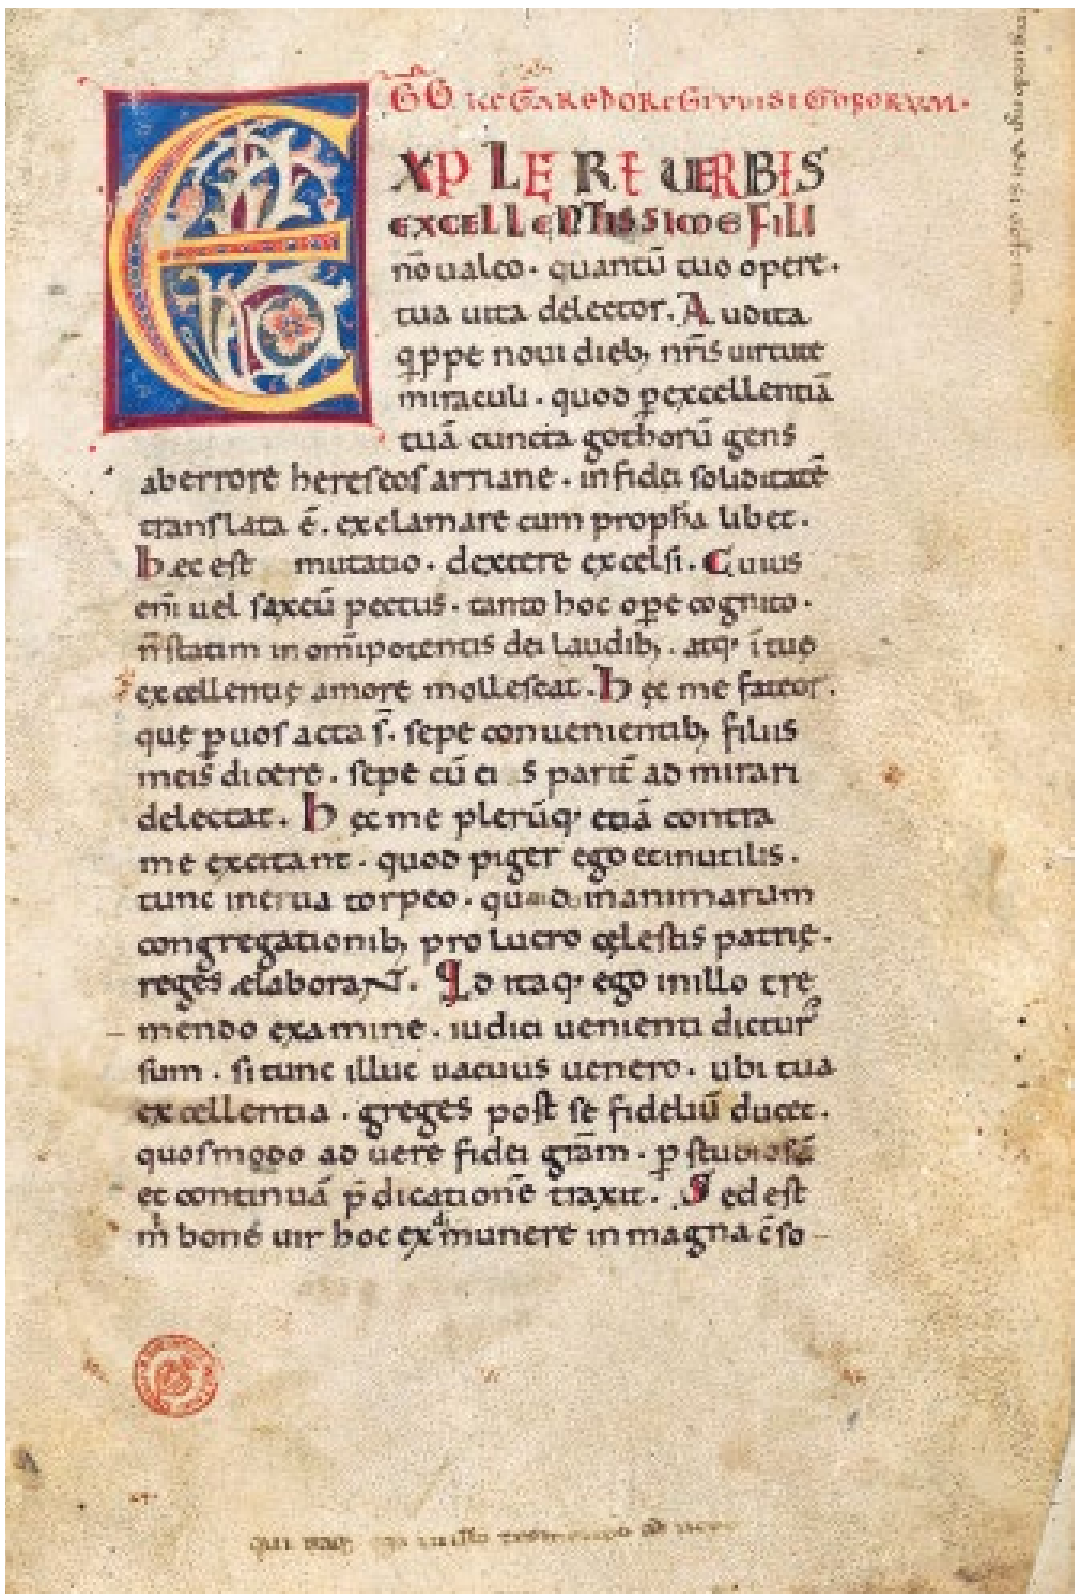 EXPLERI UERBIS
EXCELLENTISSIME FILI
nō ualeo. quantū tuo opere.
tua uita delector. Audita
q̄ppe noui dieb; nr̄is uirtute
miraculi. quod p̱ excellentiā
tuā cuncta gothorū gens
ab errore hereseos arriane. in fidei soliditatē
translata ē. exclamare cum propħa libet.
hec est mutatio. dextere excelsi. Cuius
eni uel saxeū pectus. tanto hoc op̱e cognito.
n̄ statim in om̄ipotentis dei laudib;. atq; ī tuę
excellentię amore mollescat. hęc me fateor.
quę p̱ uos acta s̄. sepe conuenientib; filiis
meis dicere. sepe cū eis parit̄ admirari
delectat. hęc me plerūq; etiā contra
me excitant. quod piger ego et inutilis.
tunc inertia torpeo. quando in animarum
congregationib; pro lucro cęlestis patrię.
reges elaborant. Qd itaq; ego in illo tre
mendo examine. iudici uenienti dictur᾿
sum. si tunc illuc uacuus uenero. ubi tua
excellentia. greges post se fideliū ducet.
quos modo ad uere fidei grām. p̱ studiosā
et continuā p̄dicationē traxit. Sed est
m̍ bone uir hoc ex di munere in magna c̄so-